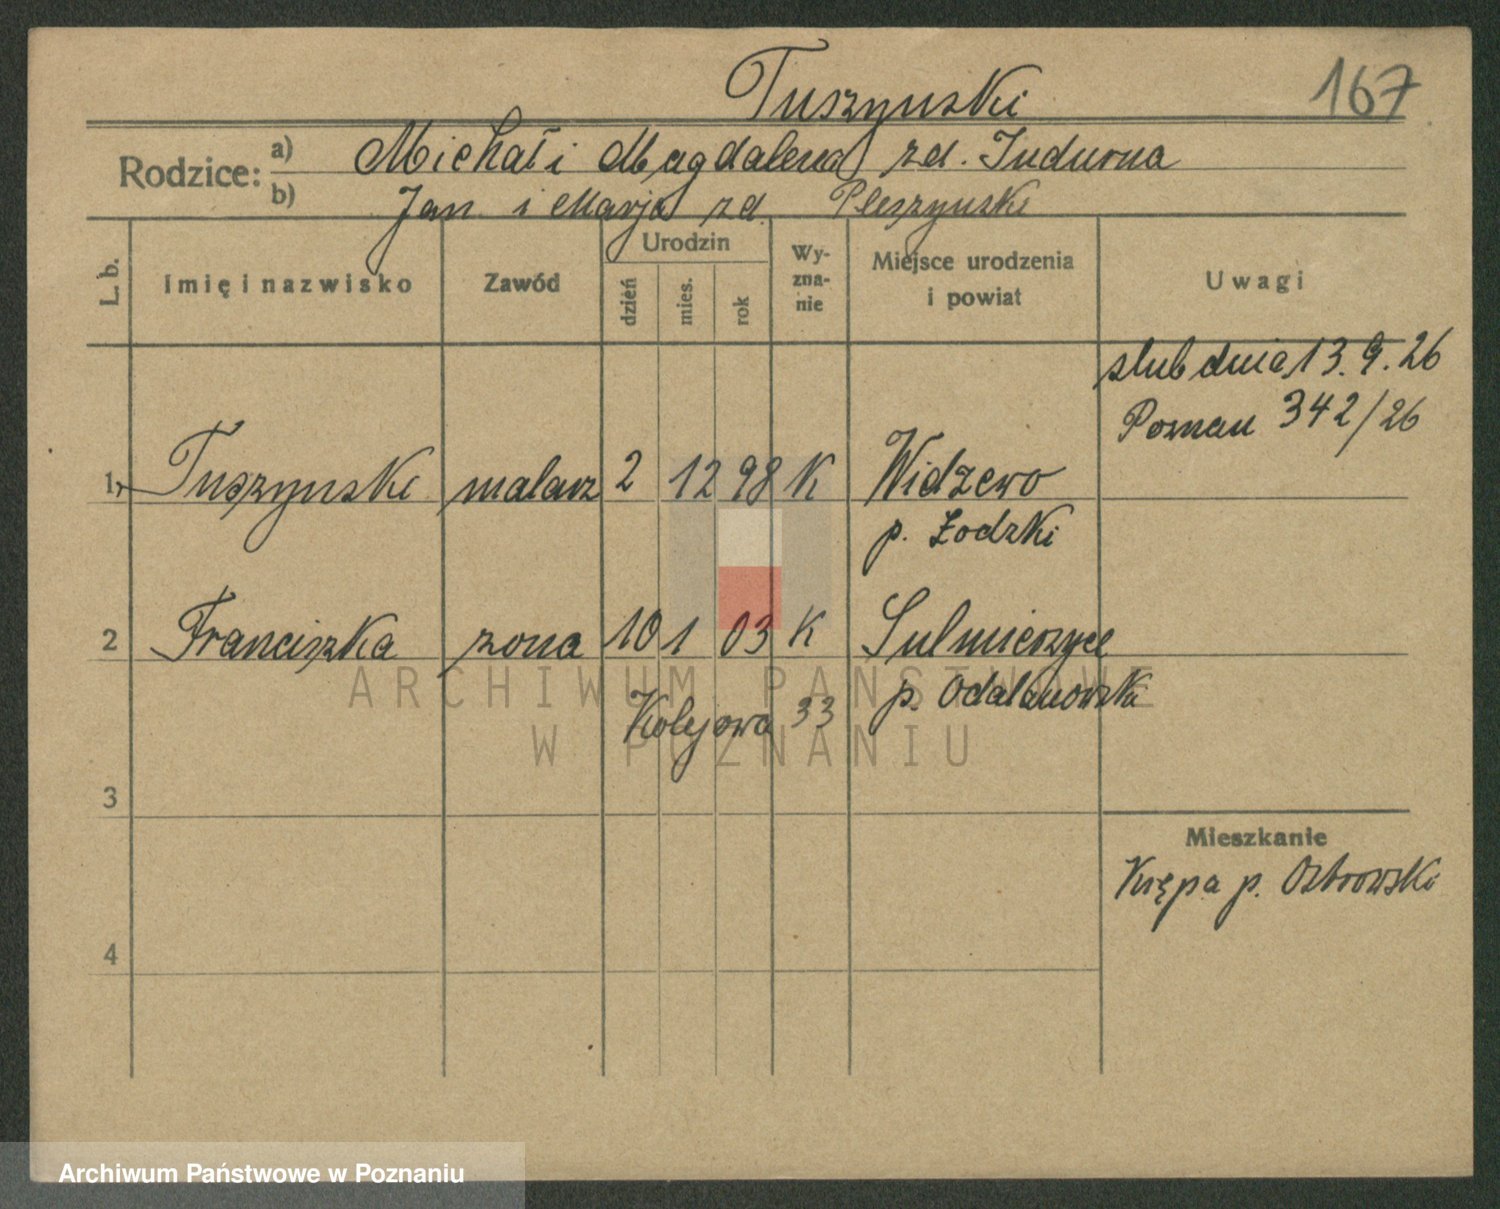 Tuszynski
167
Rodzice:
a) Michał i Magdalena zd. Indurna
b) Jan i Marja zd. Pleszynski
L. b.
Imię i nazwisko
Zawód
Urodzin
dzień
mies.
rok
Wy-
zna-
nie
Miejsce urodzenia
i powiat
Uwagi
slub dnia 13. 9. 26
Poznan 342/26
1, Tuszynski malarz 2 12 98 K Widzewo
p. Łodzki
2 Franciszka zona 10 1 03 K Sulmierzyce
p. Odalanowska
Kolejowa 33
3
Mieszkanie
Krępa p. Ostrowski
4
ARCHIWUM PAŃSTWOWE
W POZNANIU
Archiwum Państwowe w Poznaniu